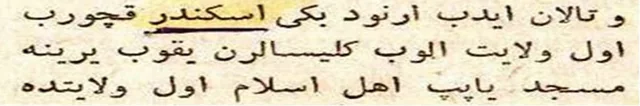 و تالان ايدب ارنود بكى اسكندر قچورب
اول ولايت الوب كليسالرن يقوب يرينه
مسجد ياپپ اهل اسلام اول ولايتده